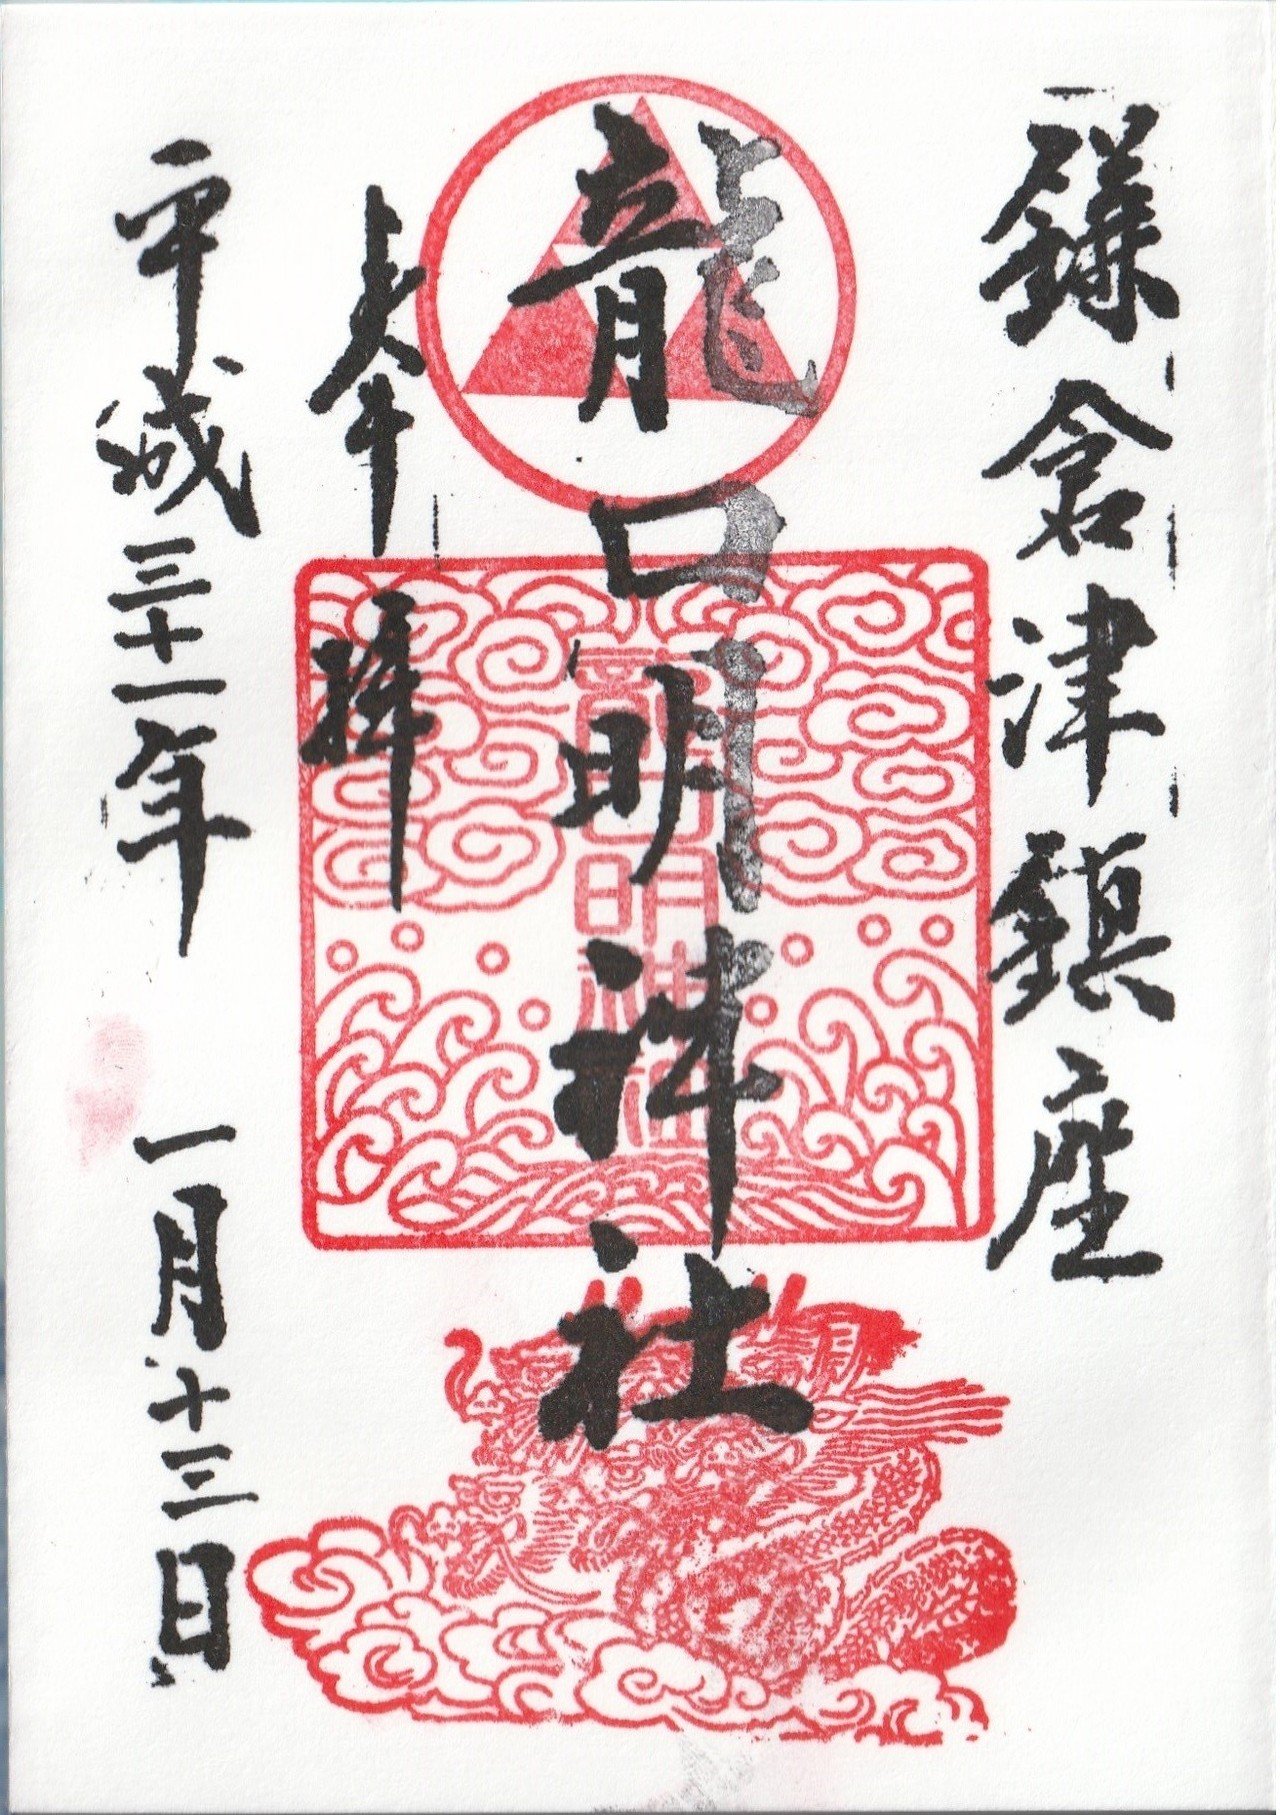 鎌倉津鎮座
龍口明神社
奉拝
平成三十一年 一月十三日
龍口明神社